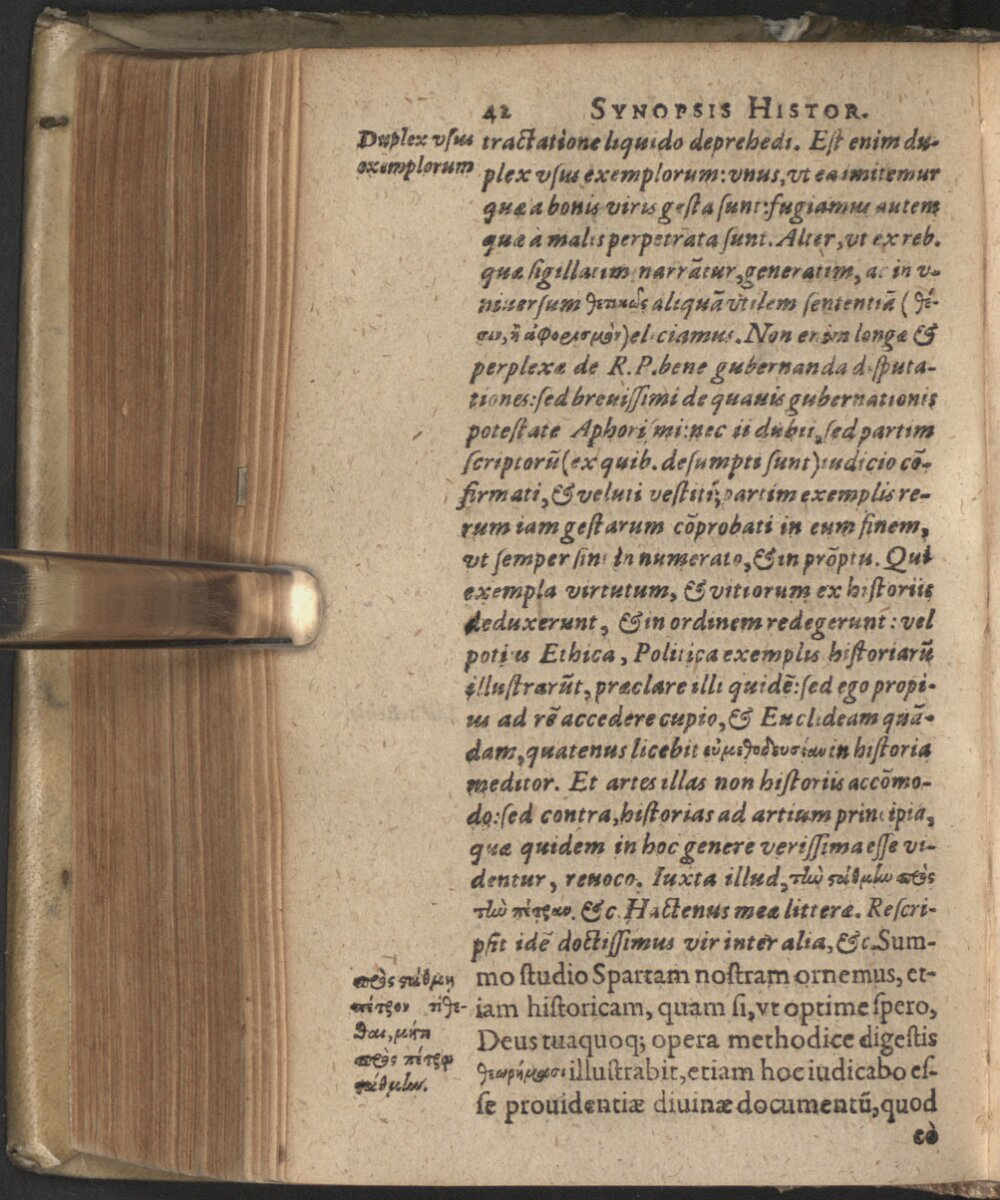 42 SYNOPSIS HISTOR.
Duplex vsus
exemplorum
tractatione liquido deprehēdi. Est enim du-
plex vsus exemplorum: vnus, vt ea imitemur
quæ a bonis viris gesta sunt: fugiamus autem
quæ a malis perpetrata sunt. Alter, vt ex reb.
quæ sigillatim narrātur, generatim, ac in v-
niuersum θετικῶς aliquā vtilem sententiā (θέ-
σιν, ἢ ἀφορισμὸν) eliciamus. Non enim longæ &
perplexæ de R.P. bene gubernanda disputa-
tiones: sed breuissimi de quauis gubernationis
potestate Aphorismi: nec ii dubii, sed partim
scriptorū (ex quib. desumpti sunt) iudicio cō-
firmati, & veluti vestiti; partim exemplis re-
rum iam gestarum cōprobati in eum finem,
vt semper sint in numerato, & in prōptu. Qui
exempla virtutum, & vitiorum ex historiis
deduxerunt, & in ordinem redegerunt: vel
potius Ethica, Politica exemplis historiarū
illustrarūt, præclare illi quidē: sed ego propi-
us ad rē accedere cupio, & Euclideam quā-
dam, quatenus licebit εὐμεθοδευσίαν in historia
meditor. Et artes illas non historiis accōmo-
do: sed contra, historias ad artium principia,
quæ quidem in hoc genere verissima esse vi-
dentur, reuoco. Iuxta illud, τὴν στάθμην πρὸς
τὴν πέτραν. &c. Hactenus meæ litteræ. Rescri-
psit idē doctissimus vir inter alia, &c. Sum-
mo studio Spartam nostram ornemus, et-
iam historicam, quam si, vt optime spero,
Deus tuaquoq; opera methodice digestis
θεωρήμασι illustrabit, etiam hoc iudicabo es-
se prouidentiæ diuinæ documentū, quod
πρὸς στάθμῃ
πέτρον τίθε-
θαι, μήτι
πρὸς πέτρῳ
στάθμην.
eò